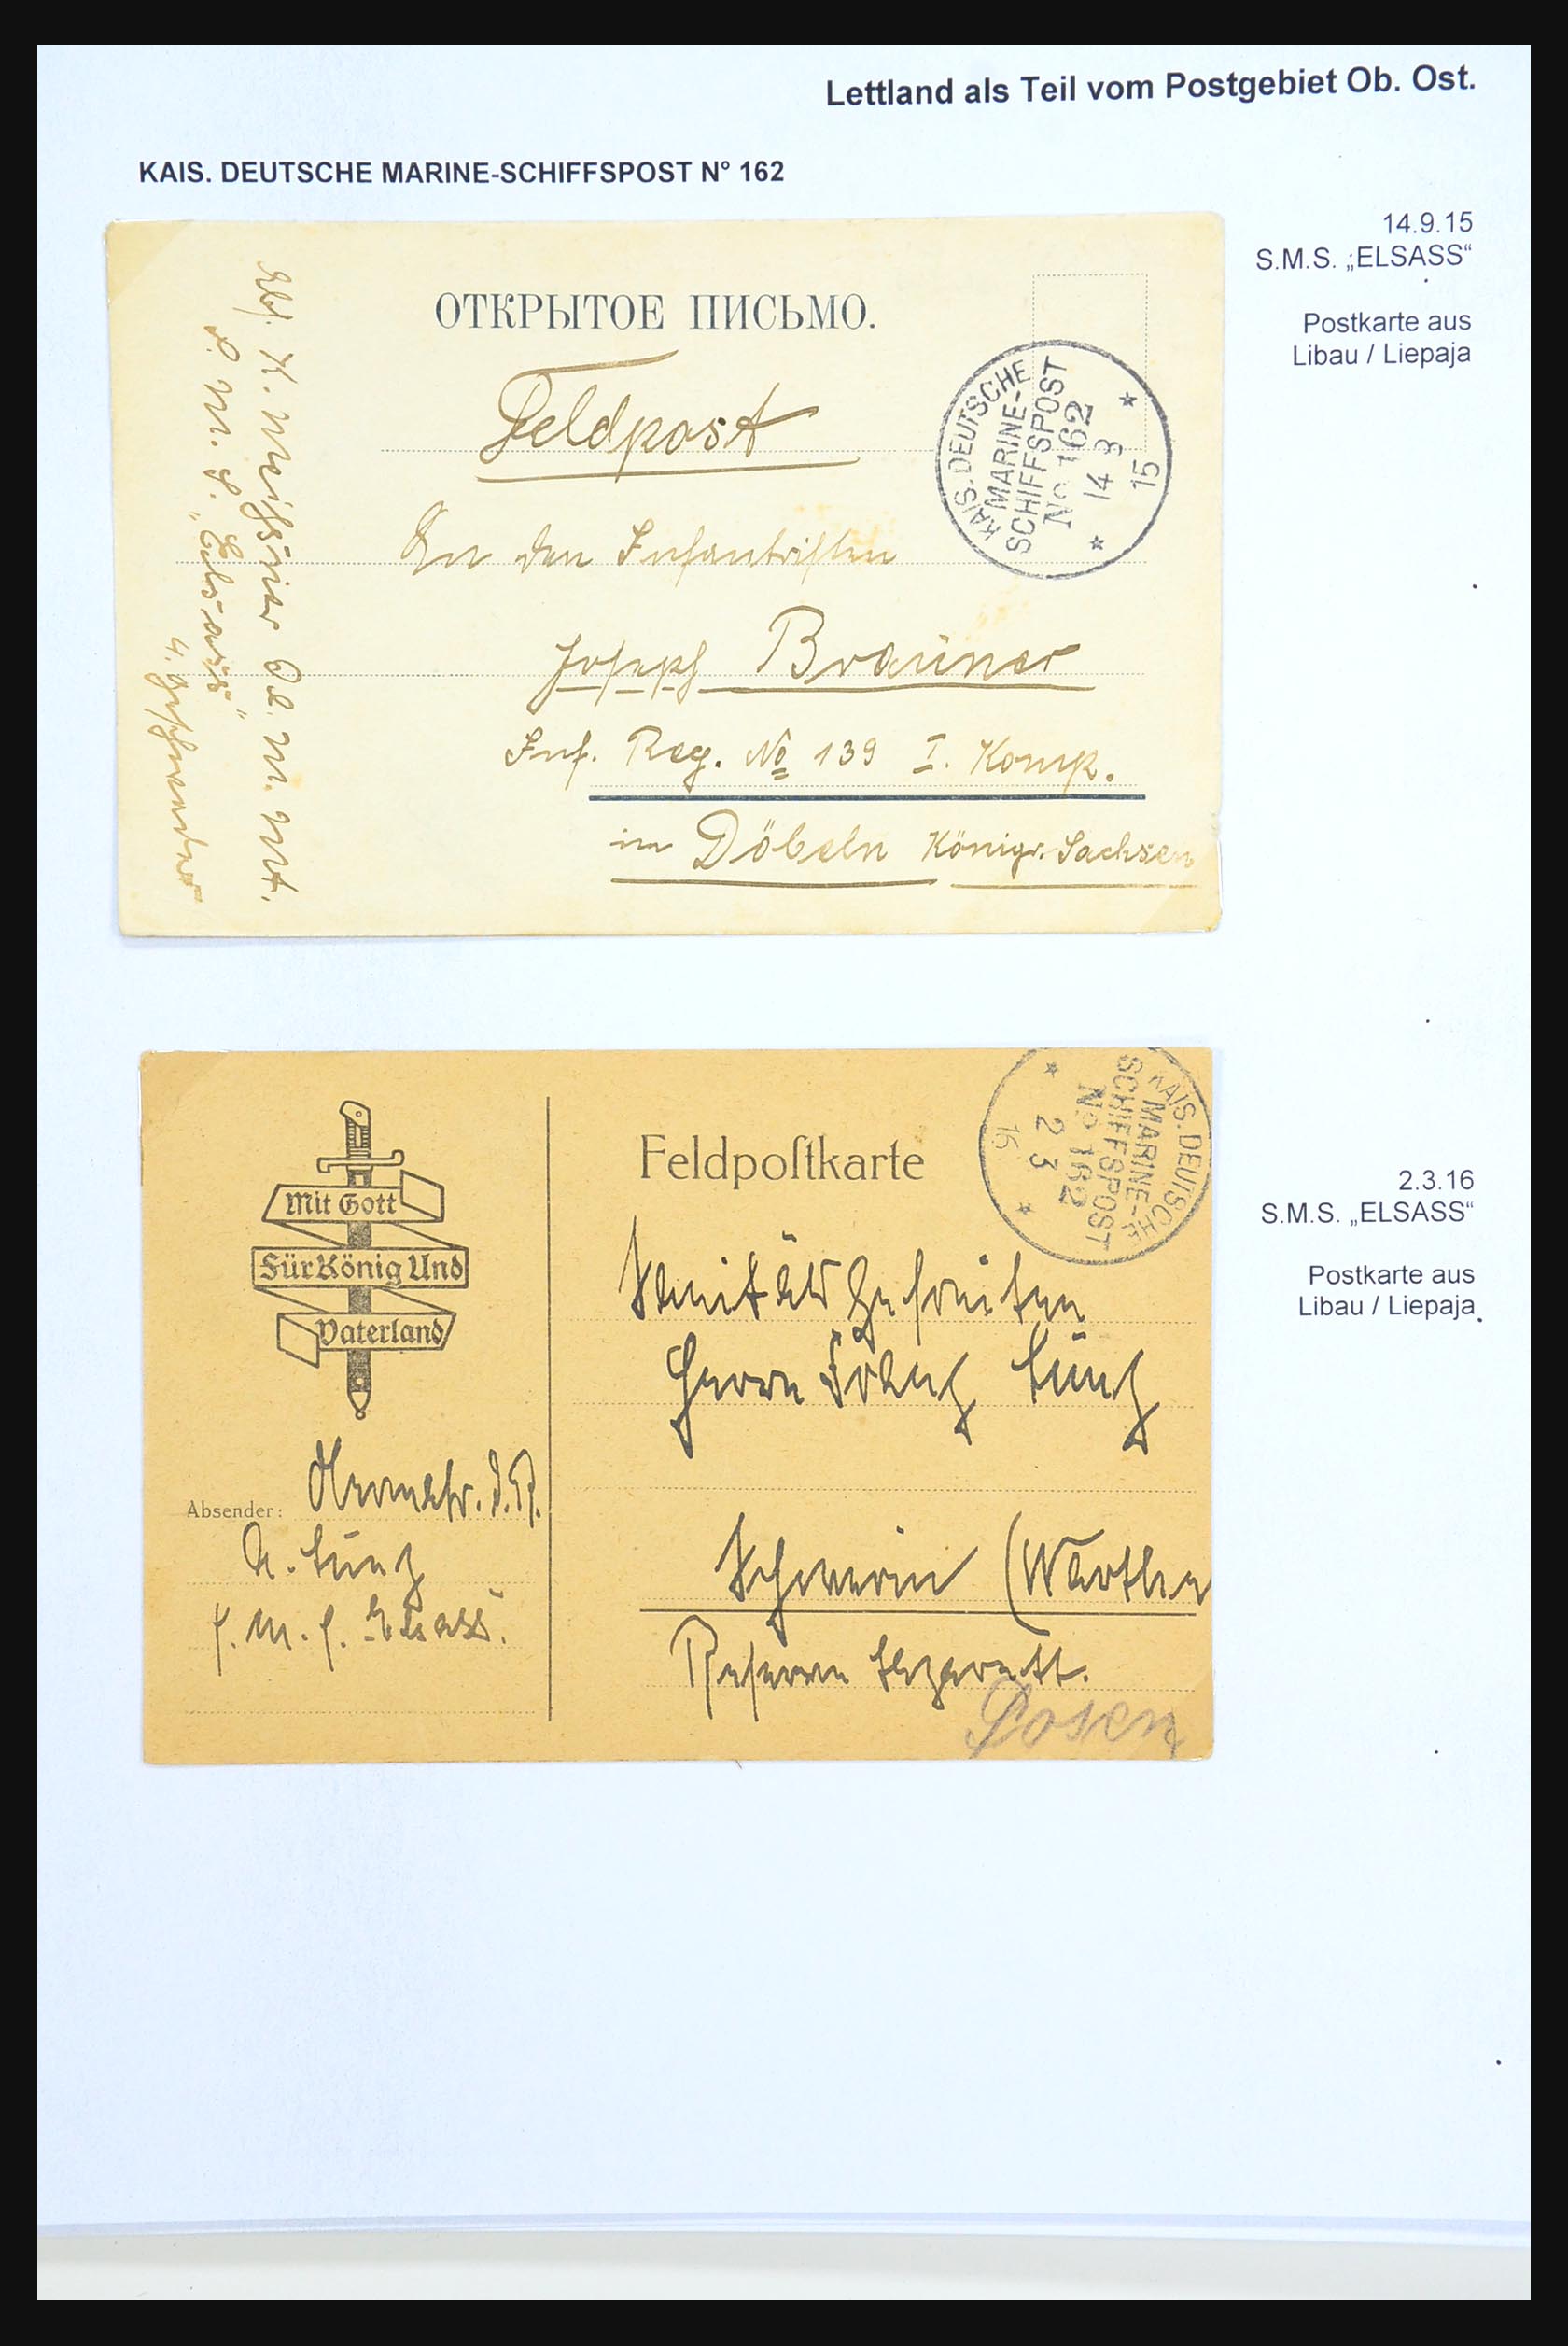 Lettland als Teil vom Postgebiet Ob. Ost.
KAIS. DEUTSCHE MARINE-SCHIFFSPOST N° 162
14.9.15
S.M.S. „ELSASS“
Postkarte aus
Libau / Liepaja
ОТКРЫТОЕ ПИСЬМО.
Feldpost
An den Infantristen
Joseph Brauner
Inf. Reg. No 139 I. Komp.
in Döbeln Königr. Sachsen
KAIS. DEUTSCHE
MARINE-
SCHIFFSPOST
No 162
14 9
15
Abs. K. Meissner
S. M. S. „Elsass“
4. Geschwader
2.3.16
S.M.S. „ELSASS“
Postkarte aus
Libau / Liepaja
Mit Gott
Für König Und
Vaterland
Feldpostkarte
KAIS. DEUTSCHE
MARINE-
SCHIFFSPOST
No 162
2 3
16
Sanitäts Gefreiten
Herrn Franz
Schwerin (Warthe
Reserve Lazarett.
Posen
Absender:
S. M. S. Elsass.